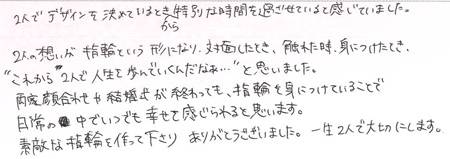 2人でデザインを決めているときから特別な時間を過ごせていると感じていました。
2人の想いが指輪という形になり、対面したとき、触れた時、身につけたとき、
"これから2人で人生を歩んでいくんだなぁ…"と思いました。
両家顔合わせや結婚式が終わっても、指輪を身につけていることで
日常の中でいつでも幸せて感じられると思います。
素敵な指輪を作って下さりありがとうございました。一生2人で大切にします。